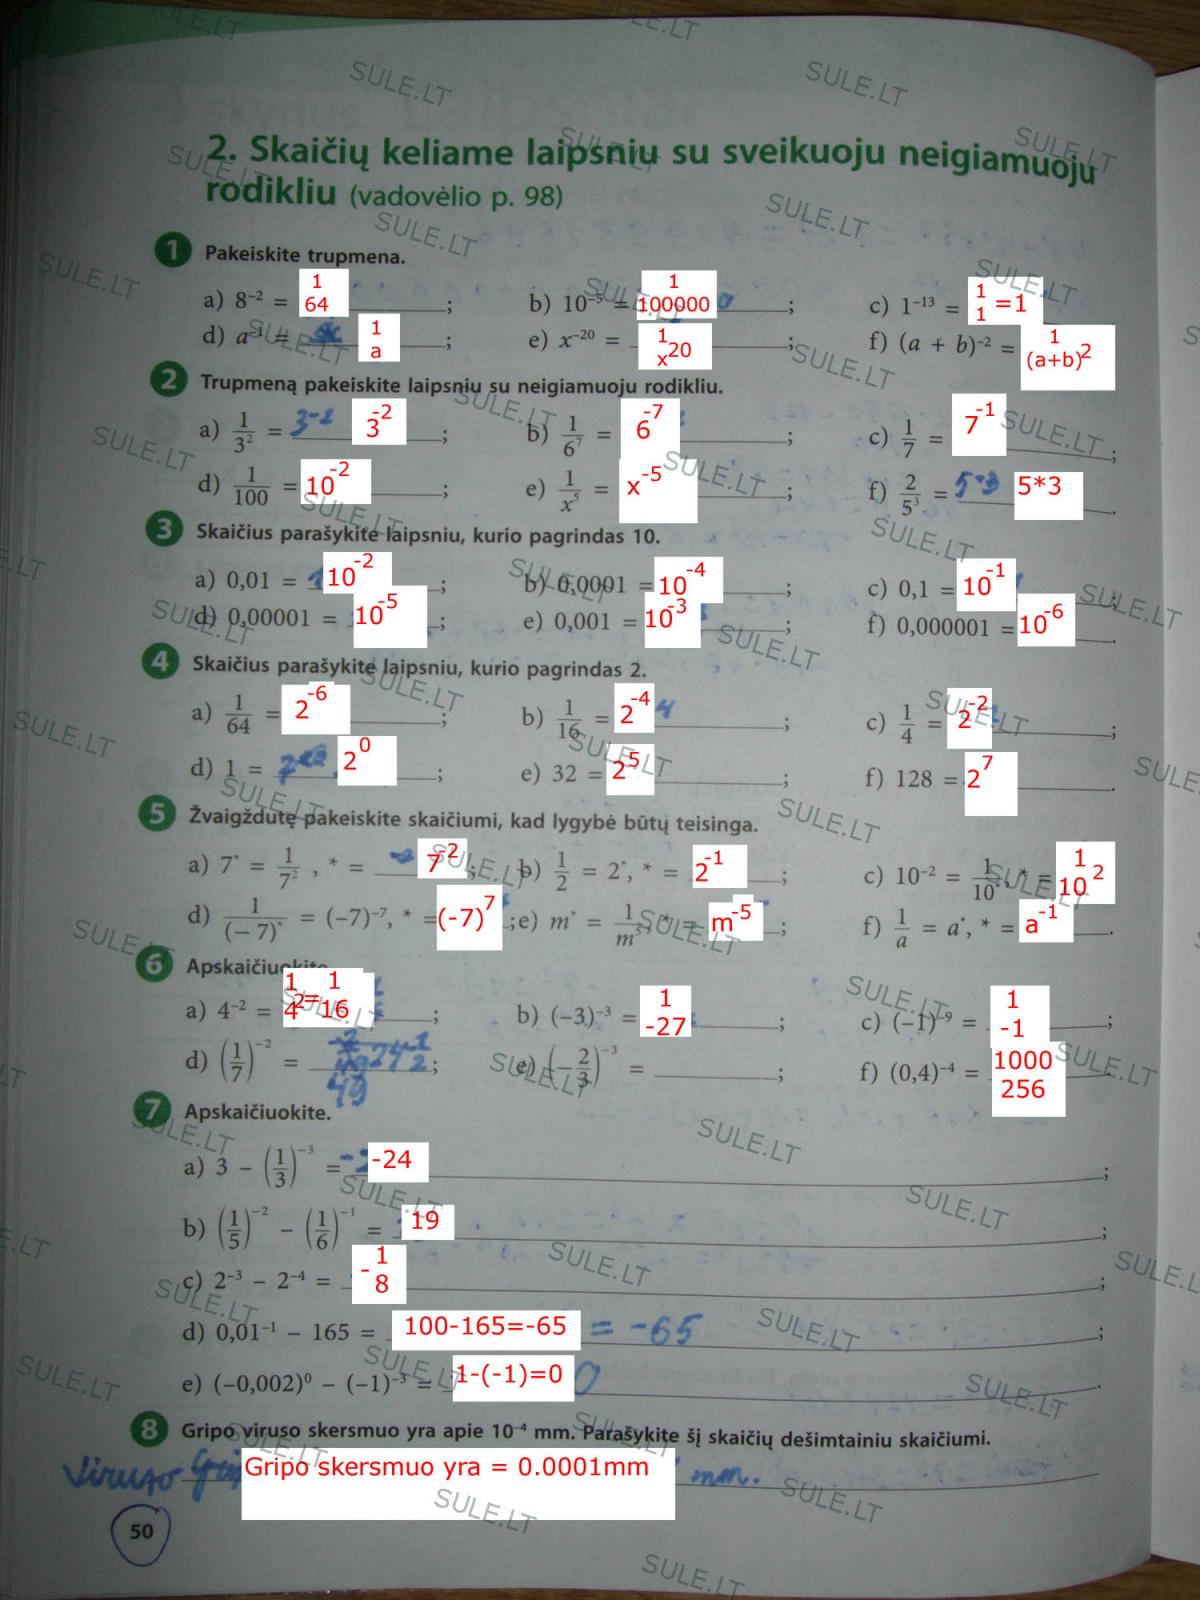 2. Skaičių keliame laipsniu su sveikuoju neigiamuoju
rodikliu (vadovėlio p. 98)
1 Pakeiskite trupmena.
a) 8⁻² = 1/64 ; b) 10⁻⁵ = 1/100000 ; c) 1⁻¹³ = 1/1 =1
d) a⁻¹ = 1/a ; e) x⁻²⁰ = 1/x²⁰ ; f) (a + b)⁻² = 1/(a+b)²
2 Trupmeną pakeiskite laipsniu su neigiamuoju rodikliu.
a) 1/3² = 3⁻² ; b) 1/6⁷ = 6⁻⁷ ; c) 1/7 = 7⁻¹ ;
d) 1/100 = 10⁻² ; e) 1/x⁵ = x⁻⁵ ; f) 2/5³ = 5*3 5*3 .
3 Skaičius parašykite laipsniu, kurio pagrindas 10.
a) 0,01 = 10⁻² ; b) 0,0001 = 10⁻⁴ ; c) 0,1 = 10⁻¹ ;
d) 0,00001 = 10⁻⁵ ; e) 0,001 = 10⁻³ ; f) 0,000001 = 10⁻⁶ .
4 Skaičius parašykite laipsniu, kurio pagrindas 2.
a) 1/64 = 2⁻⁶ ; b) 1/16 = 2⁻⁴ ; c) 1/4 = 2⁻² ;
d) 1 = 2⁰ ; e) 32 = 2⁵ ; f) 128 = 2⁷ .
5 Žvaigždutę pakeiskite skaičiumi, kad lygybė būtų teisinga.
a) 7* = 1/7² , * = 7⁻² ; b) 1/2 = 2*, * = 2⁻¹ ; c) 10⁻² = 1/10*, * = 1/10²
d) 1/(–7)* = (–7)⁻⁷, * = (-7)⁷ ; e) m* = 1/m⁵, * = m⁻⁵ ; f) 1/a = a*, * = a⁻¹ .
6 Apskaičiuokite.
a) 4⁻² = 1/4² = 1/16 ; b) (–3)⁻³ = 1/-27 ; c) (–1)⁻⁹ = 1/-1 ;
d) (1/7)⁻² = 49 ; e) (–2/3)⁻³ = ; f) (0,4)⁻⁴ = 1000/256 .
7 Apskaičiuokite.
a) 3 – (1/3)⁻³ = -24 ;
b) (1/5)⁻² – (1/6)⁻¹ = 19 ;
c) 2⁻³ – 2⁻⁴ = -1/8 ;
d) 0,01⁻¹ – 165 = 100-165=-65 = -65 ;
e) (–0,002)⁰ – (–1)⁻³ = 1-(-1)=0 0 .
8 Gripo viruso skersmuo yra apie 10⁻⁴ mm. Parašykite šį skaičių dešimtainiu skaičiumi.
Viruso Gripo skersmuo yra = 0.0001mm mm.
50
SULE.LT